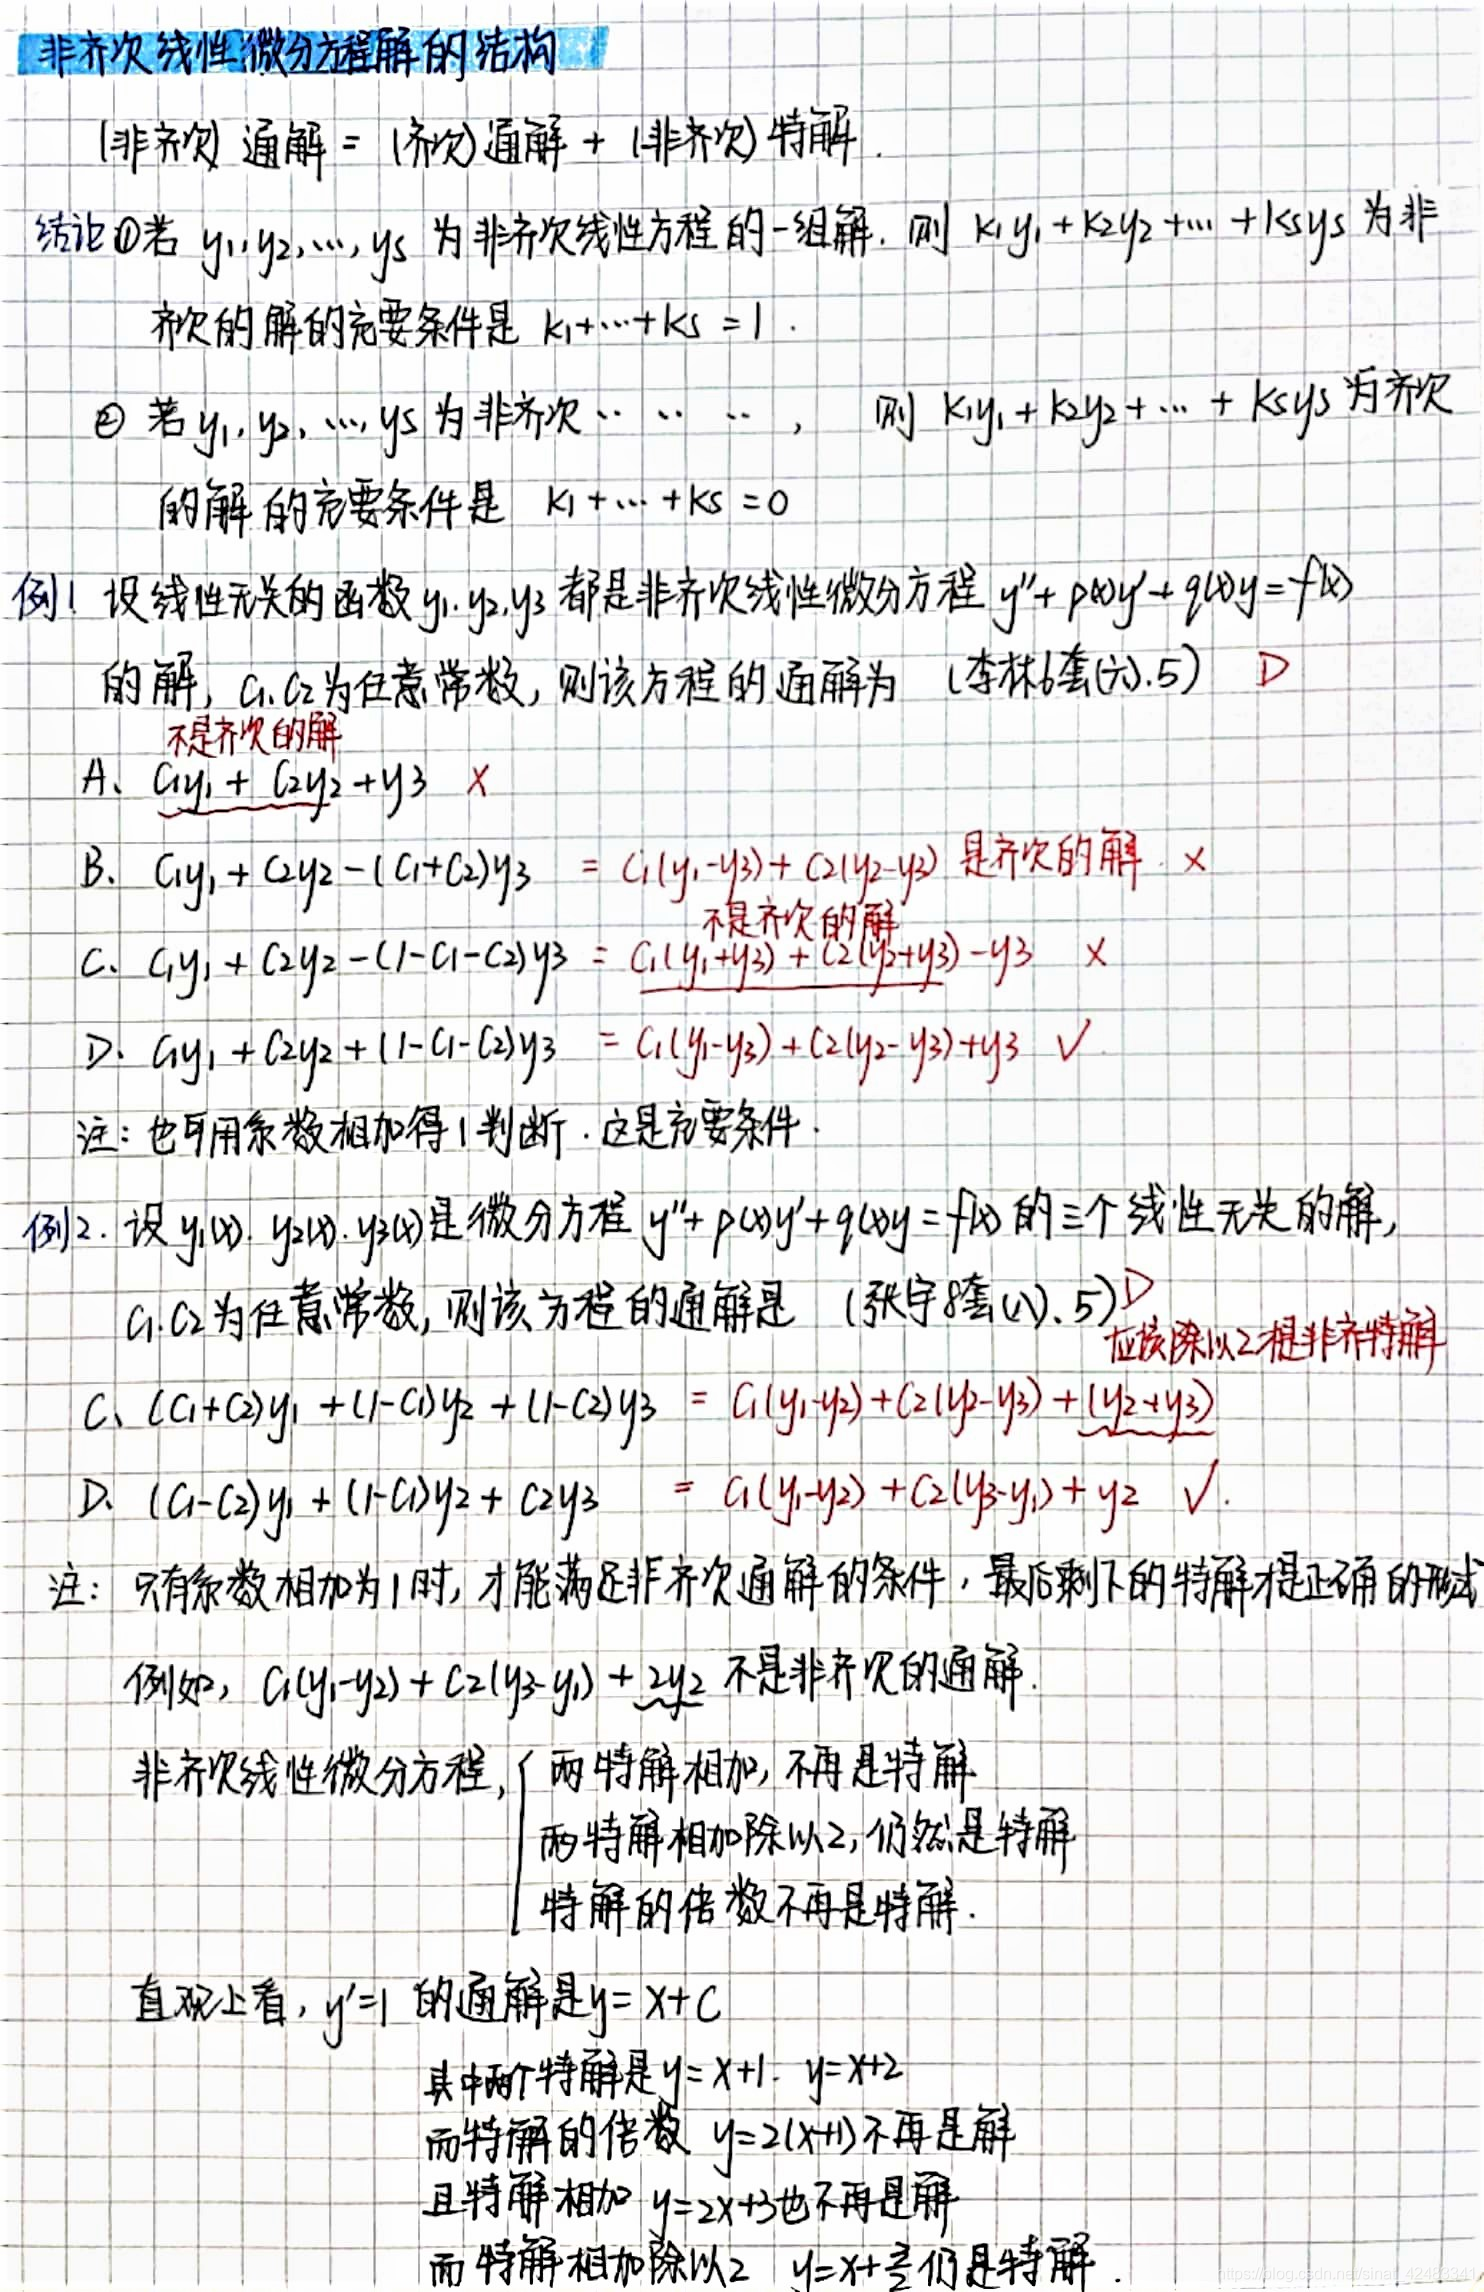 非齐次线性微分方程解的结构
(非齐次) 通解 = (齐次)通解 + (非齐次)特解.
结论①若 y1,y2,…,ys 为非齐次线性方程的一组解. 则 k1y1+k2y2+…+ksys 为非
齐次的解的充要条件是 k1+…+ks=1.
② 若y1,y2,…,ys为非齐次……, 则 k1y1+k2y2+…+ksys为齐次
的解的充要条件是 k1+…+ks=0
例1 设线性无关的函数y1.y2.y3都是非齐次线性微分方程 y''+p(x)y'+q(x)y=f(x)
的解, C1.C2为任意常数, 则该方程的通解为 (李林6套(六).5) D
不是齐次的解
A、C1y1+C2y2+y3 ×
B、C1y1+C2y2-(C1+C2)y3 = C1(y1-y3)+C2(y2-y3) 是齐次的解. ×
不是齐次的解
C、C1y1+C2y2-(1-C1-C2)y3 = C1(y1+y3)+C2(y2+y3)-y3 ×
D、C1y1+C2y2+(1-C1-C2)y3 = C1(y1-y3)+C2(y2-y3)+y3 √
注: 也可用系数相加得1判断.这是充要条件.
例2. 设y1(x).y2(x).y3(x)是微分方程 y''+p(x)y'+q(x)y=f(x)的三个线性无关的解,
C1.C2为任意常数, 则该方程的通解是 (张宇8套(八).5) D
应该除以2才是非齐特解
C、(C1+C2)y1+(1-C1)y2+(1-C2)y3 = C1(y1-y2)+C2(y2-y3)+(y2+y3)
D、(C1-C2)y1+(1-C1)y2+C2y3 = C1(y1-y2)+C2(y3-y1)+y2 √.
注: 只有系数相加为1时, 才能满足非齐次通解的条件, 最后剩下的特解才是正确的形式
例如, C1(y1-y2)+C2(y3-y1)+2y2 不是非齐次的通解.
非齐次线性微分方程, { 两特解相加, 不再是特解
两特解相加除以2, 仍然是特解
特解的倍数不再是特解.
直观上看, y'=1 的通解是y=x+C
其中两个特解是y=x+1. y=x+2
而特解的倍数 y=2(x+1)不再是解
且特解相加 y=2x+3也不再是解
而特解相加除以2 y=x+3/2仍是特解.